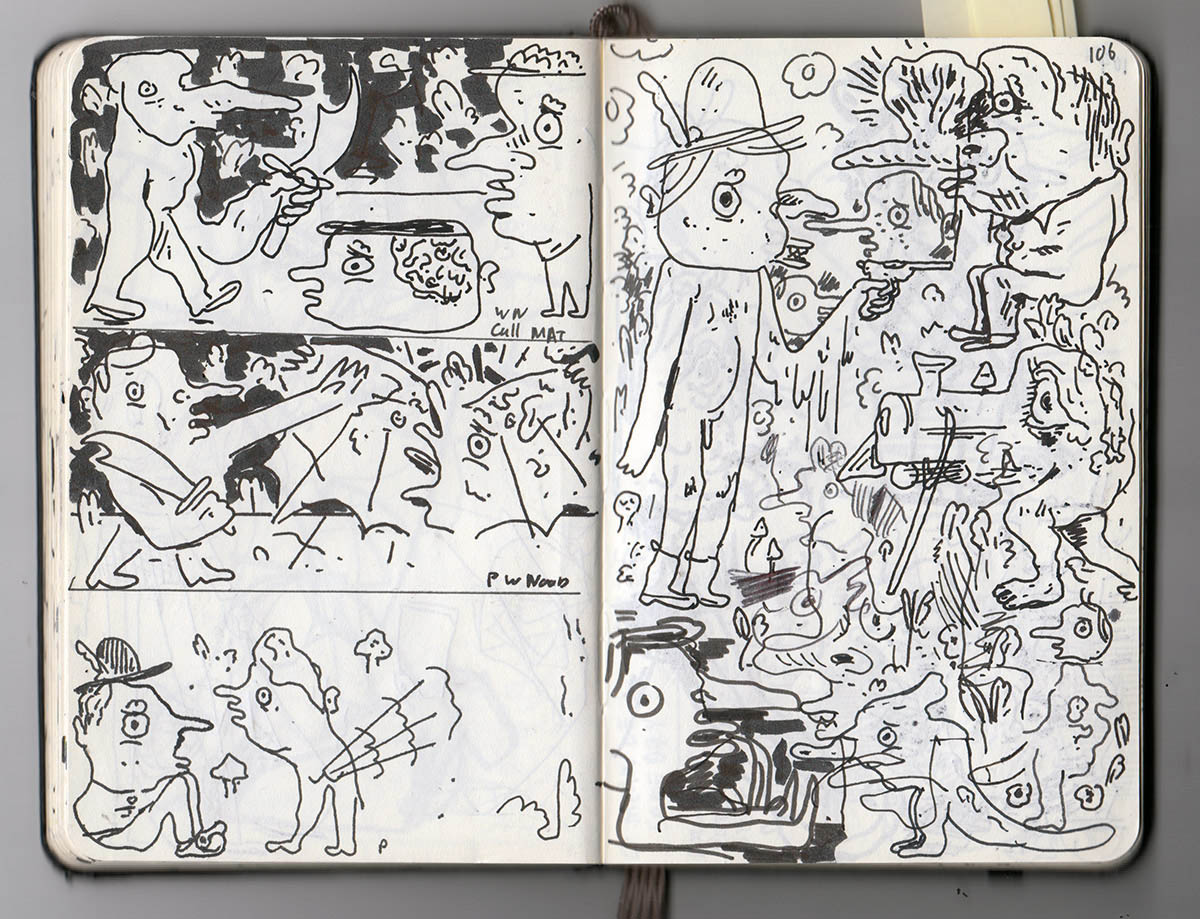 WN
Call MAT
P W NOOD
P
106